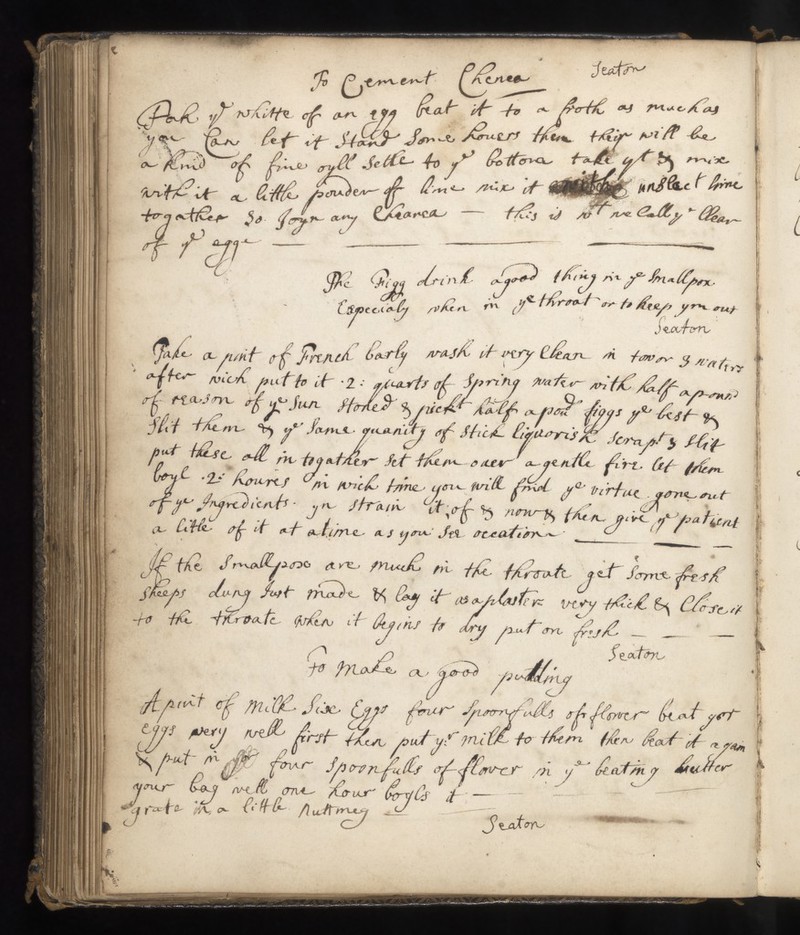 To Cement Chenea Seaton
Tak ye whitte of an egg beat it to a froth as much as
you Can let it Stand Some houers then their will be
a kind of fine oyll Setle to ye bottom take yt & mix
with it a little powder of lime mix it unslect lime
togather So Joyn any Cheanea — this is wt we Call ye Clear
of ye egge —
The Figg drink a good thing in ye Smallpox
Especialy when in ye throat or to keep ym out
Seaton
Take a pint of French barly wash it very Clean in tow or 3 waters
after wich put to it .2: quarts of Spring water with half a pound
of reason of ye Sun Stoned & pickt half a pod figgs ye best &
Slit them & ye Same quanity of Stick liquorish Scrapt & Slit
put these all in togather Set them over a gentle fire let them
boyl .2: houres in wich time you will find ye virtue gone out
of ye Ingredients. yn Strain it of & now & then give ye patient
a little of it at a time as you See occation —
If the Smallpox are much in the throate get Some fresh
Sheeps dung Just made & lay it as a plaster very thick & Close it
to the throate when it begins to dry put on fresh —
Seaton
To Make a good pudding
A pint of Milk Six Eggs four Spoonfulls of flower beat yor
eggs very well first then put yr milk to them then beat it again
& put in four Spoonfulls of flower in ye beating butter
your bag well one hour boyls it —
grate in a little Nuttmeg —
Seaton